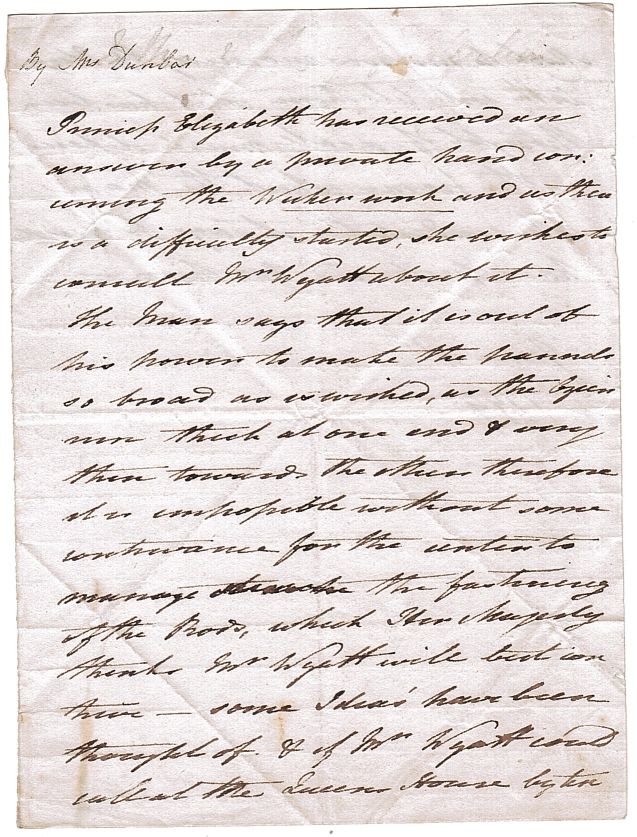 By Mrs Dunbar
Princess Elizabeth has received an
answer by a private hand con:
cerning the Wicker work and as there
is a difficulty started, she wishes to
consult Mr Wyatt about it.
The Man says that it is out of
his power to make the pannels
so broad as is wished, as the
run thick at one end & very
thin towards the other therefore
it is impossible without some
contrivance for the center to
manage the fastening
of the Rods, which Her Majesty
thinks Mr Wyatt will best con
trive — some Ideas have been
thought of & if Mr Wyatt could
call at the Queens House by ten